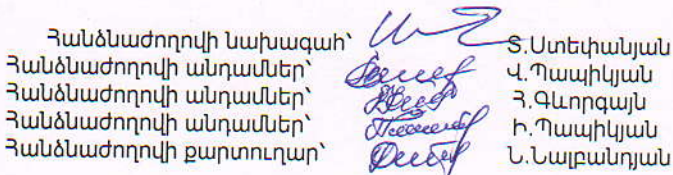 Հանձնաժողովի նախագահ՝ Տ.Ստեփանյան
Հանձնաժողովի անդամներ՝ Վ.Պապիկյան
Հանձնաժողովի անդամներ՝ Հ.Գևորգայն
Հանձնաժողովի անդամներ՝ Ի.Պապիկյան
Հանձնաժողովի քարտուղար՝ Ն.Նալբանդյան